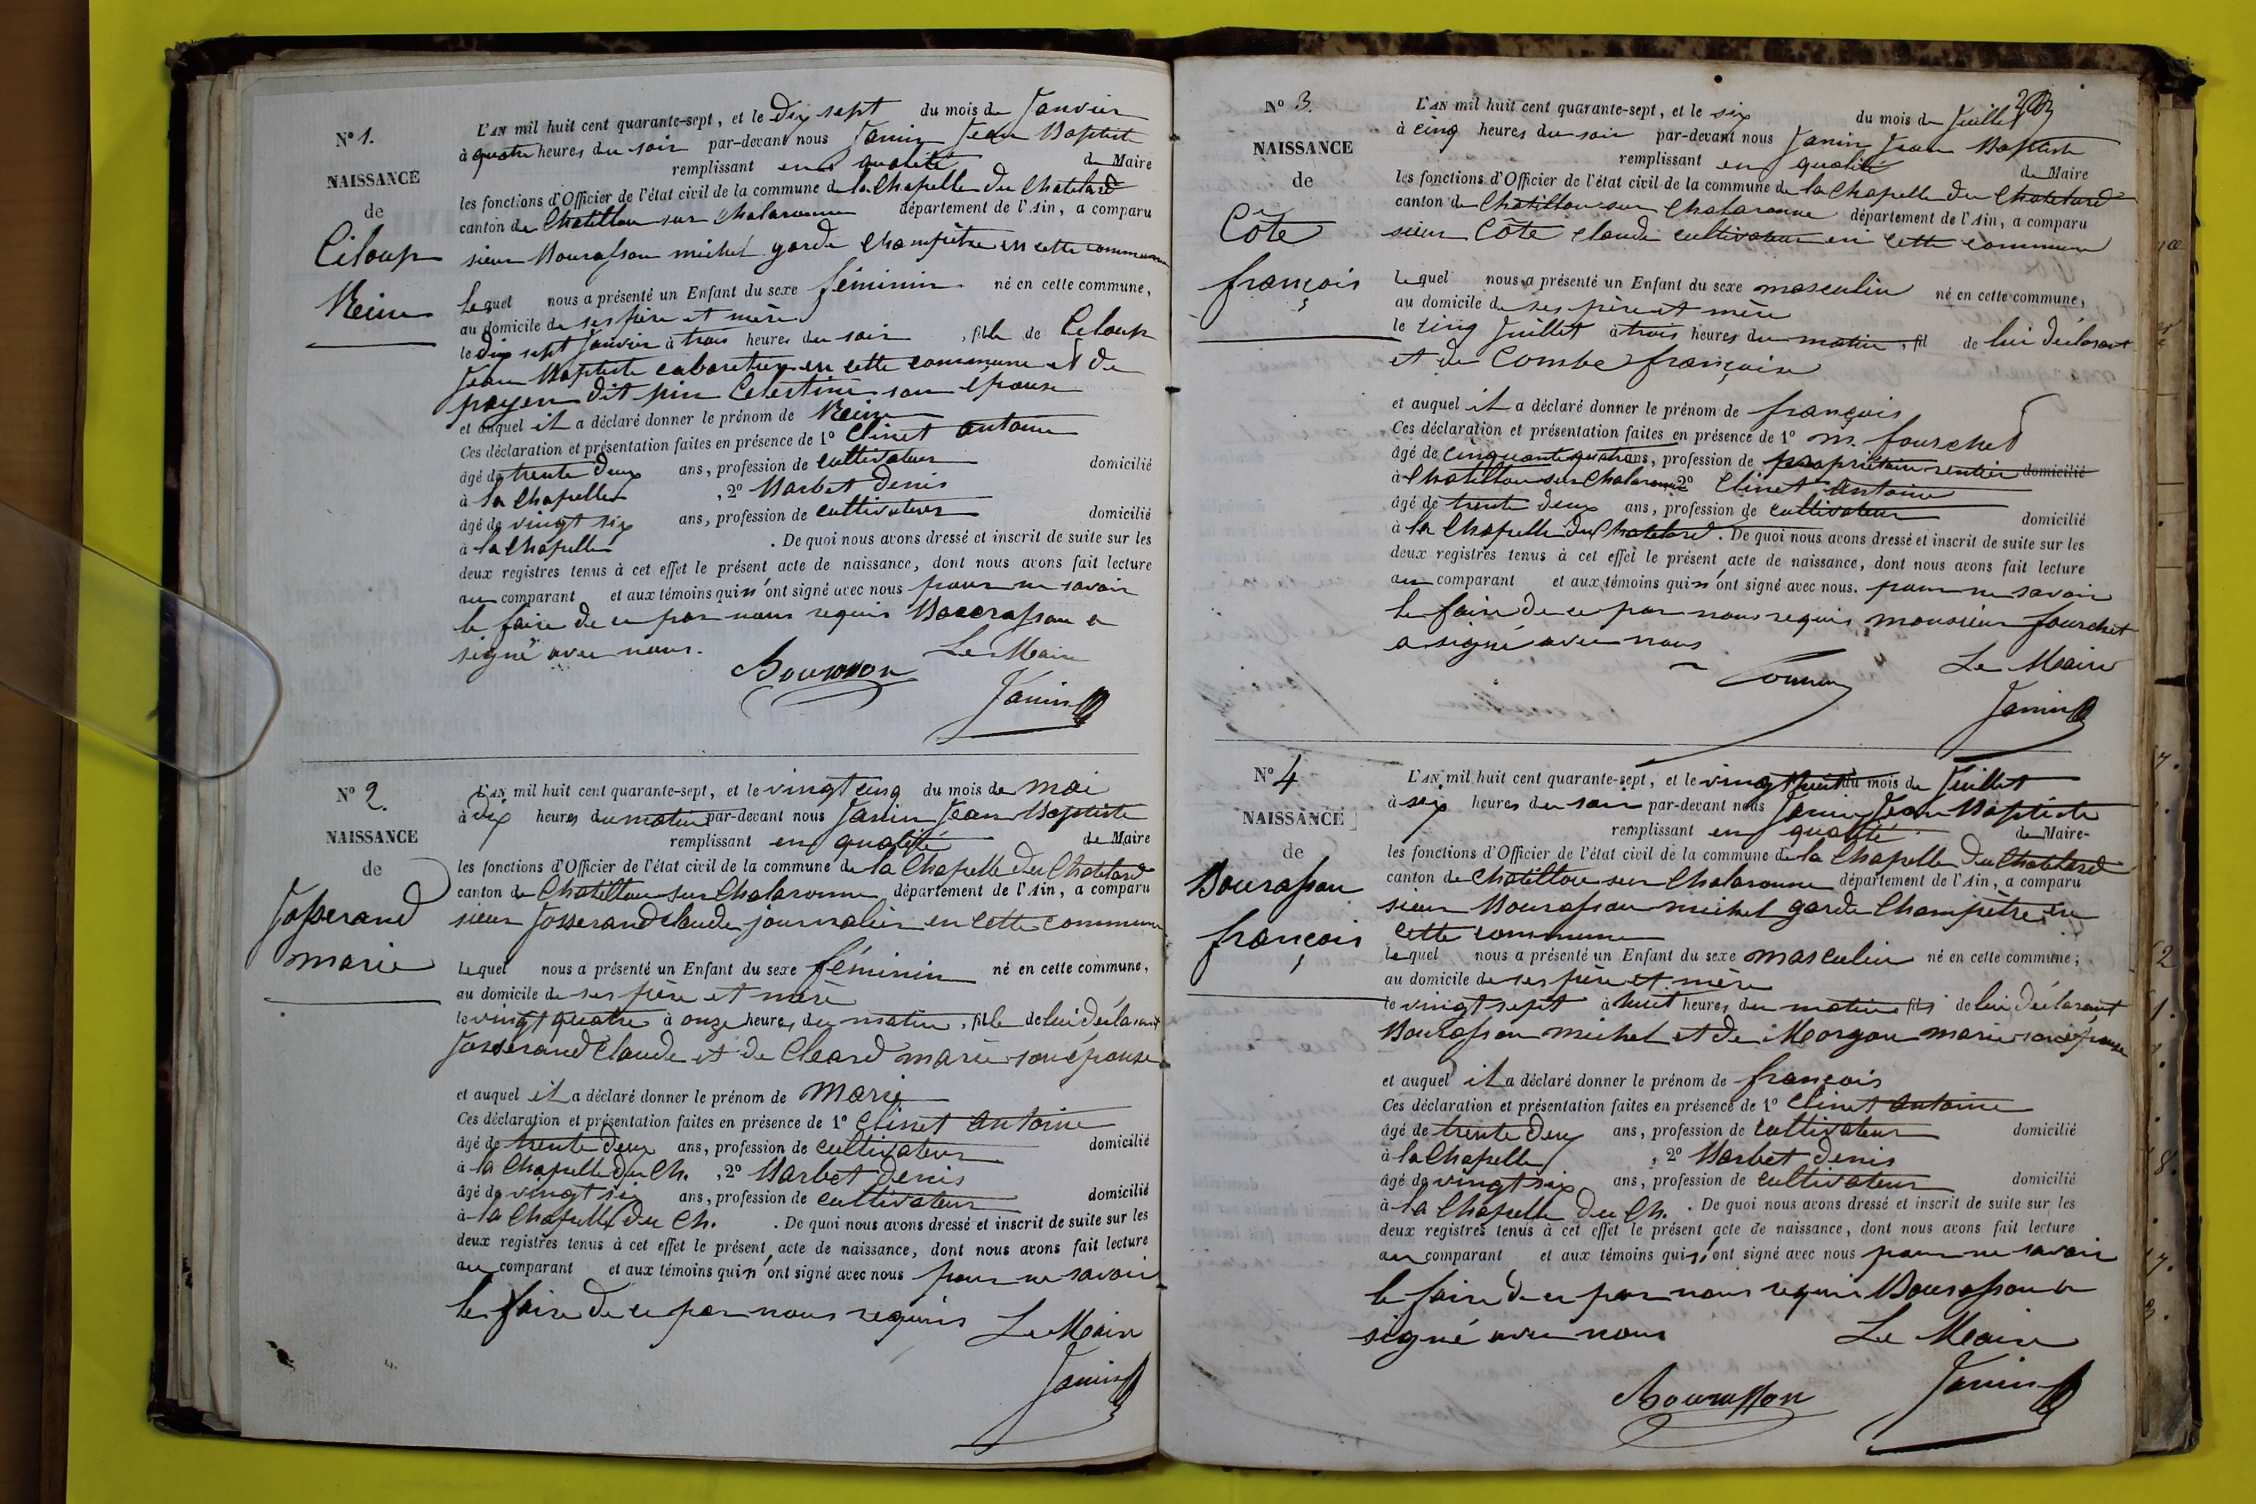 N° 1.
NAISSANCE
de
Ciloup
Reine
L'AN mil huit cent quarante-sept, et le dix sept du mois de Janvier
à quatre heures du soir par-devant nous Janin Jean Baptiste
remplissant en qualité de Maire
les fonctions d'Officier de l'état civil de la commune de la Chapelle du Chatelard
canton de Chatillon sur Chalaronne département de l'Ain, a comparu
sieur Bourasson michel garde champêtre en cette commune
lequel nous a présenté un Enfant du sexe féminin né en cette commune,
au domicile de ses père et mère
le dix sept Janvier à trois heures du soir, fille de Ciloup
Jean Baptiste cabaretier en cette commune et de
payen dit pin Celestine son épouse
et auquel il a déclaré donner le prénom de Reine
Ces déclaration et présentation faites en présence de 1° Clinet antoine
âgé de trente deux ans, profession de cultivateur domicilié
à la Chapelle, 2° Barbet denis
âgé de vingt six ans, profession de cultivateur domicilié
à la Chapelle. De quoi nous avons dressé et inscrit de suite sur les
deux registres tenus à cet effet le présent acte de naissance, dont nous avons fait lecture
au comparant et aux témoins qui n'ont signé avec nous pour ne savoir
le faire de ce par nous requis Bourasson a
signé avec nous. Le Maire
Bourasson
Janin
N° 2.
NAISSANCE
de
Josserand
marie
L'AN mil huit cent quarante-sept, et le vingt cinq du mois de mai
à dix heures du matin par-devant nous Janin Jean Baptiste
remplissant en qualité de Maire
les fonctions d'Officier de l'état civil de la commune de la Chapelle du Chatelard
canton de Chatillon sur Chalaronne département de l'Ain, a comparu
sieur Josserand claude journalier en cette commune
lequel nous a présenté un Enfant du sexe féminin né en cette commune,
au domicile de ses père et mère
le vingt quatre à onze heures du matin, fille de lui déclarant
Josserand Claude et de Cleard marie son épouse
et auquel il a déclaré donner le prénom de Marie
Ces déclaration et présentation faites en présence de 1° Clinet antoine
âgé de trente deux ans, profession de cultivateur domicilié
à la Chapelle du Ch., 2° Barbet denis
âgé de vingt six ans, profession de cultivateur domicilié
à la Chapelle du Ch. . De quoi nous avons dressé et inscrit de suite sur les
deux registres tenus à cet effet le présent acte de naissance, dont nous avons fait lecture
au comparant et aux témoins qui n'ont signé avec nous pour ne savoir
le faire de ce par nous requis Le Maire
Janin
N° 3.
NAISSANCE
de
Côte
françois
L'AN mil huit cent quarante-sept, et le six du mois de Juillet
à cinq heures du soir par-devant nous Janin Jean Baptiste
remplissant en qualité de Maire
les fonctions d'Officier de l'état civil de la commune de la Chapelle du Chatelard
canton de Chatillon sur Chalaronne département de l'Ain, a comparu
sieur Côte claude cultivateur en cette commune
lequel nous a présenté un Enfant du sexe masculin né en cette commune,
au domicile de ses père et mère
le cinq Juillet à trois heures du matin, fil de lui déclarant
et de Combe françoise
et auquel il a déclaré donner le prénom de françois
Ces déclaration et présentation faites en présence de 1° m. fourchet
âgé de cinquante quatre ans, profession de propriétaire rentier domicilié
à Chatillon sur Chalaronne 2° Clinet antoine
âgé de trente deux ans, profession de cultivateur domicilié
à la Chapelle du Chatelard. De quoi nous avons dressé et inscrit de suite sur les
deux registres tenus à cet effet le présent acte de naissance, dont nous avons fait lecture
au comparant et aux témoins qui n'ont signé avec nous. pour ne savoir
le faire de ce par nous requis monsieur fourchet
a signé avec nous Le Maire
Janin
N° 4
NAISSANCE
de
Bourasson
françois
L'AN mil huit cent quarante-sept, et le vingt huit du mois de Juillet
à six heures du soir par-devant nous Janin Jean Baptiste
remplissant en qualité de Maire
les fonctions d'Officier de l'état civil de la commune de la Chapelle du Chatelard
canton de Chatillon sur Chalaronne département de l'Ain, a comparu
sieur Bourasson michel garde Champêtre en
cette commune
lequel nous a présenté un Enfant du sexe masculin né en cette commune;
au domicile de ses père et mère
le vingt sept à huit heures du matin fils de lui déclarant
Bourasson michel et de Morgon marie son épouse
et auquel il a déclaré donner le prénom de françois
Ces déclaration et présentation faites en présence de 1° Clinet antoine
âgé de trente deux ans, profession de cultivateur domicilié
à la Chapelle, 2° Barbet denis
âgé de vingt six ans, profession de cultivateur domicilié
à la Chapelle du Ch. . De quoi nous avons dressé et inscrit de suite sur les
deux registres tenus à cet effet le présent acte de naissance, dont nous avons fait lecture
au comparant et aux témoins qui n'ont signé avec nous pour ne savoir
le faire de ce par nous requis Bourasson a
signé avec nous Le Maire
Bourasson
Janin